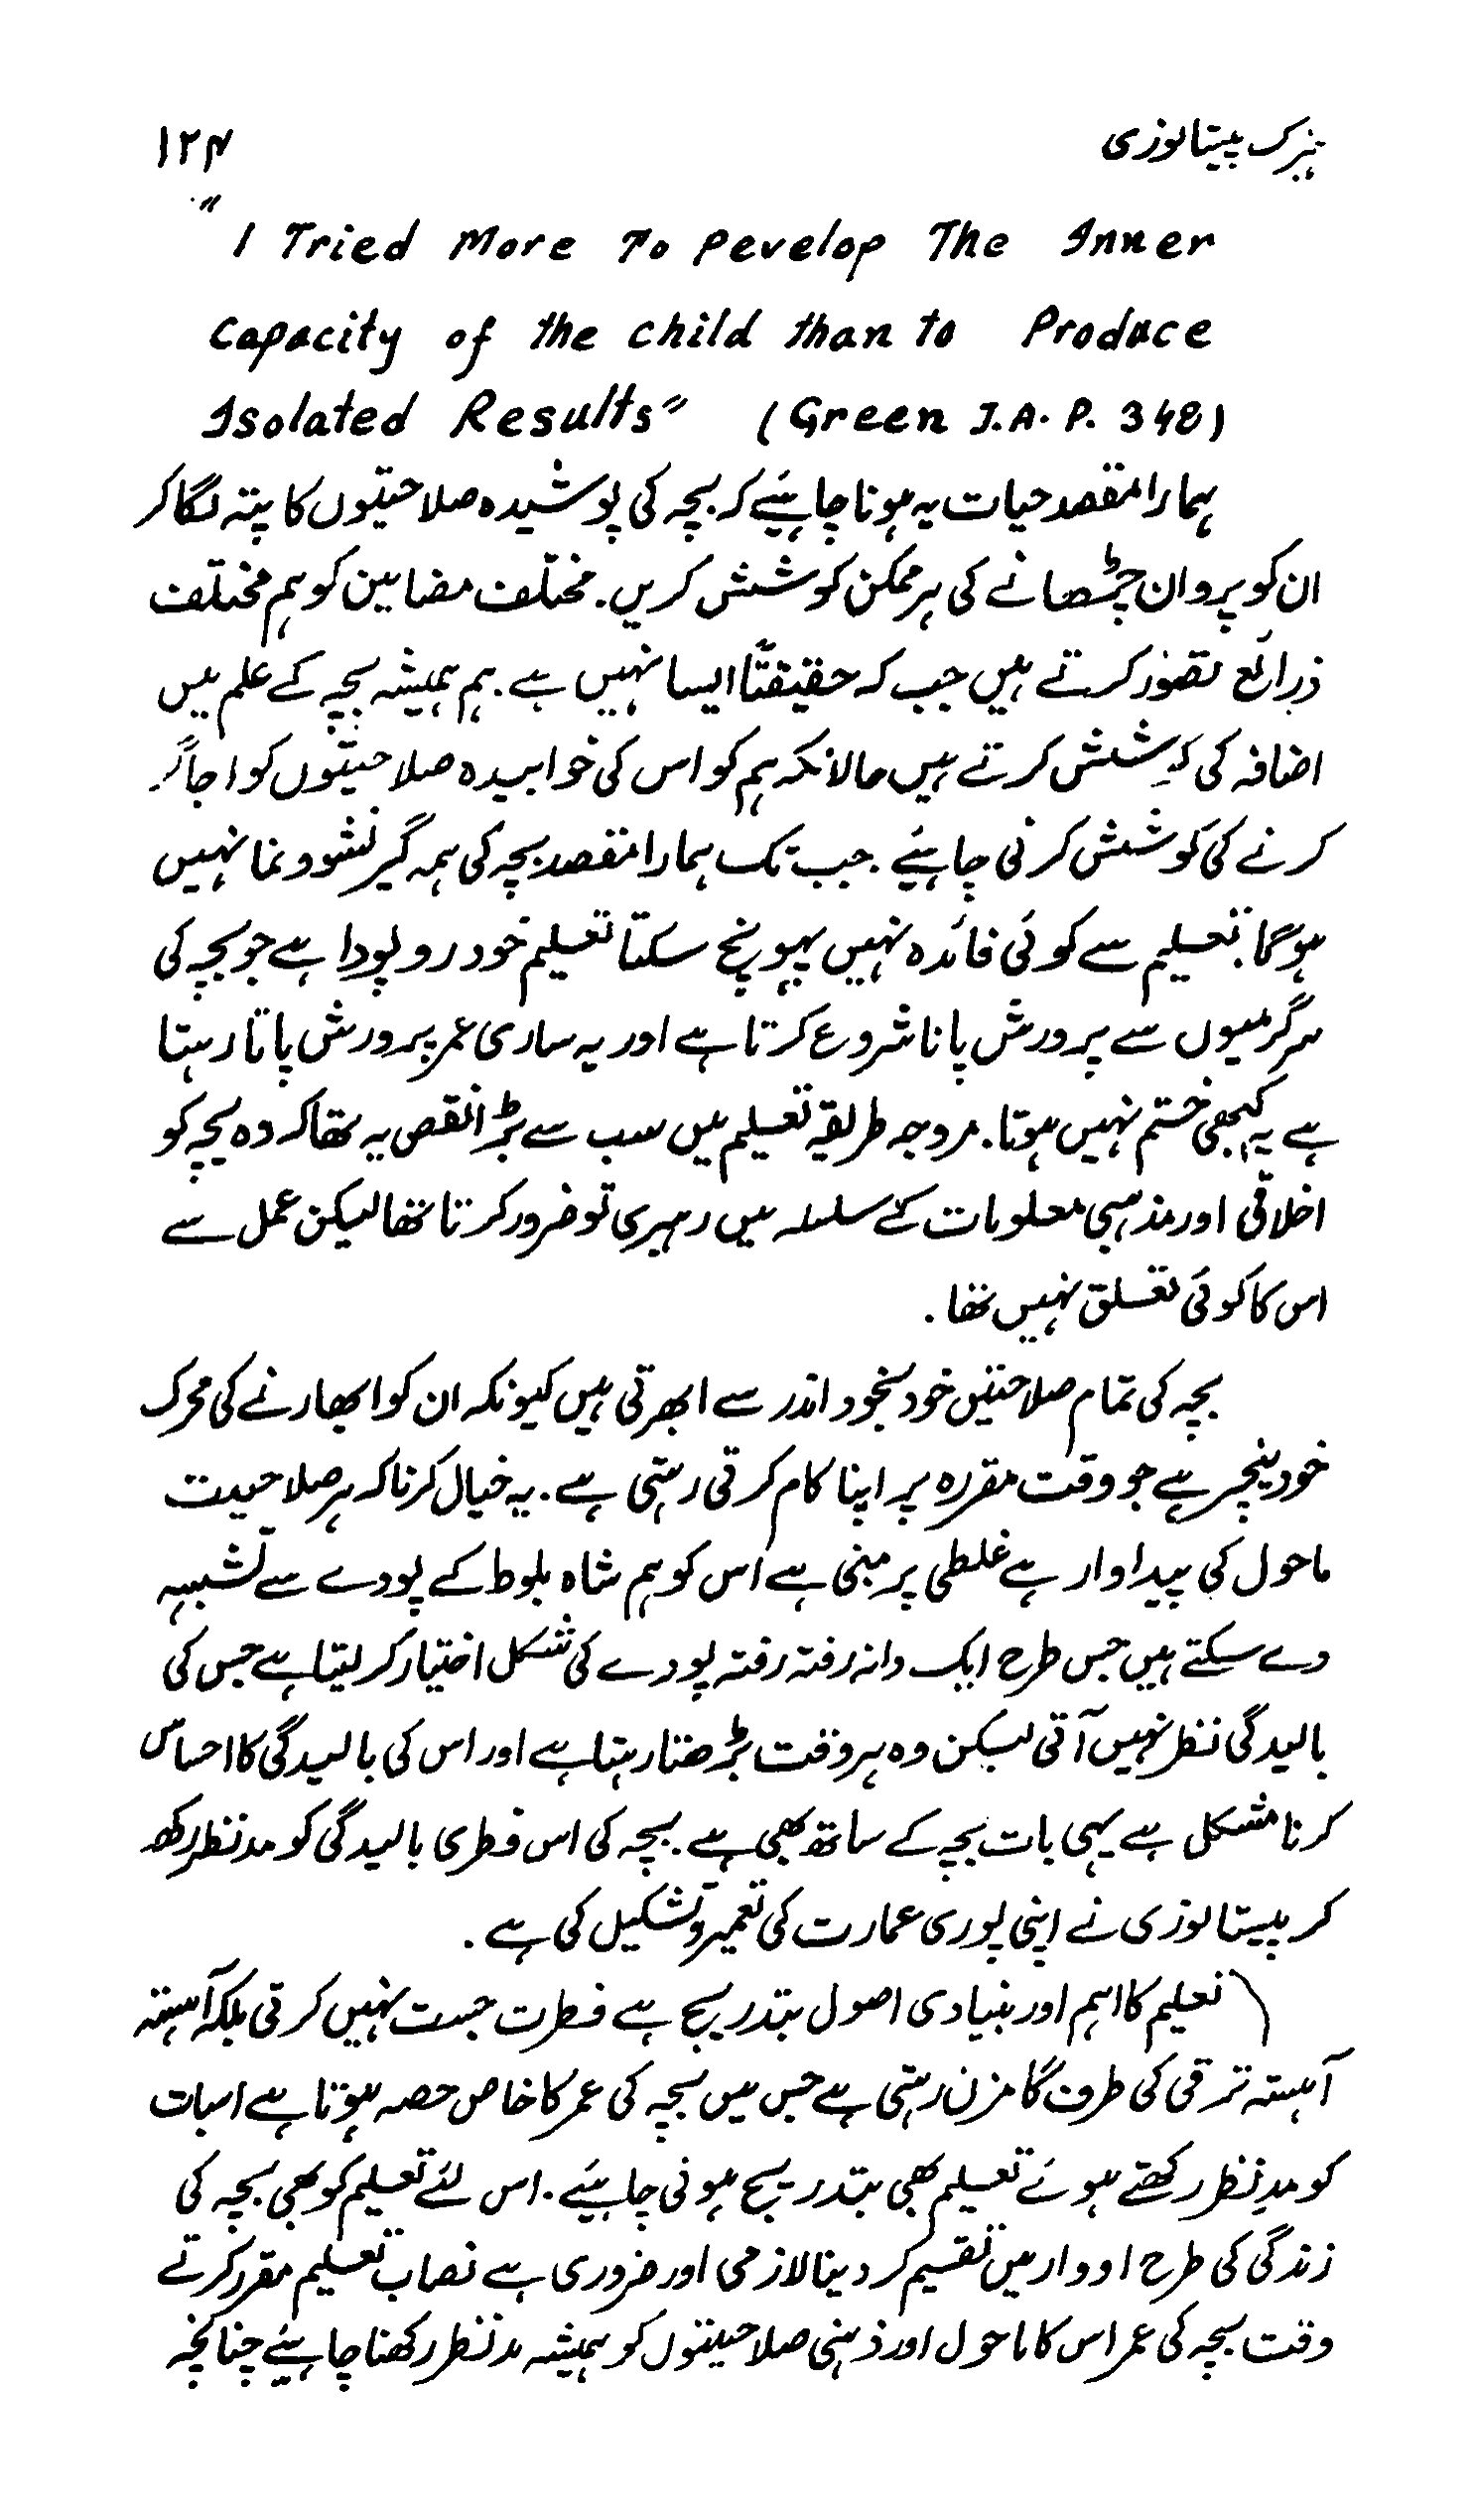 ہنرک پیتالوزی ۱۲۴
"I Tried More To Pevelop The Inner
Capacity of the child than to Produce
Isolated Results" (Green J.A. P. 348)
ہمارا مقصد حیات یہ ہونا چاہئیے کہ بچہ کی پوشیدہ صلاحیتوں کا پتہ لگا کر
ان کو پروان چڑھانے کی ہر ممکن کوشش کریں۔ مختلف مضامین کو ہم مختلف
ذرائع تصور کرتے ہیں جب کہ حقیقتاً ایسا نہیں ہے۔ ہم ہمیشہ بچہ کے علم میں
اضافہ کی کوشش کرتے ہیں حالانکہ ہم کو اس کی خوابیدہ صلاحیتوں کو اجاگر
کرنے کی کوشش کرنی چاہئیے۔ جب تک ہمارا مقصد بچہ کی ہمہ گیر نشوونما نہیں
ہوگا۔ تعلیم سے کوئی فائدہ نہیں پہونچ سکتا تعلیم خودرو پودا ہے جو بچہ کی
سرگرمیوں سے پرورش پانا شروع کرتا ہے اور یہ ساری عمر پرورش پاتا رہتا
ہے یہ کبھی ختم نہیں ہوتا۔ مروجہ طریقہ تعلیم میں سب سے بڑا نقص یہ تھا کہ وہ بچہ کو
اخلاقی اور مذہبی معلومات کے سلسلہ میں رہبری تو ضرور کرتا تھا لیکن عمل سے
اس کا کوئی تعلق نہیں تھا۔
بچہ کی تمام صلاحیتیں خود بخود اندر سے ابھرتی ہیں کیونکہ ان کو ابھارنے کی محرک
خود نیچر ہے جو وقت مقررہ پر اپنا کام کرتی رہتی ہے۔ یہ خیال کرنا کہ ہر صلاحیت
ماحول کی پیداوار ہے غلطی پر مبنی ہے اس کو ہم شاہ بلوط کے پودے سے تشبیہ
دے سکتے ہیں جس طرح ایک دانہ رفتہ رفتہ پودے کی شکل اختیار کر لیتا ہے جس کی
بالیدگی نظر نہیں آتی لیکن وہ ہر وقت بڑھتا رہتا ہے اور اس کی بالیدگی کا احساس
کرنا مشکل ہے یہی بات بچہ کے ساتھ بھی ہے۔ بچہ کی اس فطری بالیدگی کو مدنظر رکھ
کر پیستالوزی نے اپنی پوری عمارت کی تعمیر و تشکیل کی ہے۔
(تعلیم کا اہم اور بنیادی اصول بتدریج ہے فطرت جست نہیں کرتی بلکہ آہستہ
آہستہ ترقی کی طرف گامزن رہتی ہے جس میں بچہ کی عمر کا خاص حصہ ہوتا ہے اسبات
کو مدِنظر رکھتے ہوئے تعلیم بھی بتدریج ہونی چاہئیے۔ اس لئے تعلیم کو بھی بچہ کی
زندگی کی طرح ادوار میں تقسیم کر دینا لازمی اور ضروری ہے نصاب تعلیم مقرر کرتے
وقت بچہ کی عمر اس کا ماحول اور ذہنی صلاحیتوں کو ہمیشہ مدنظر رکھنا چاہئیے چنانچہ